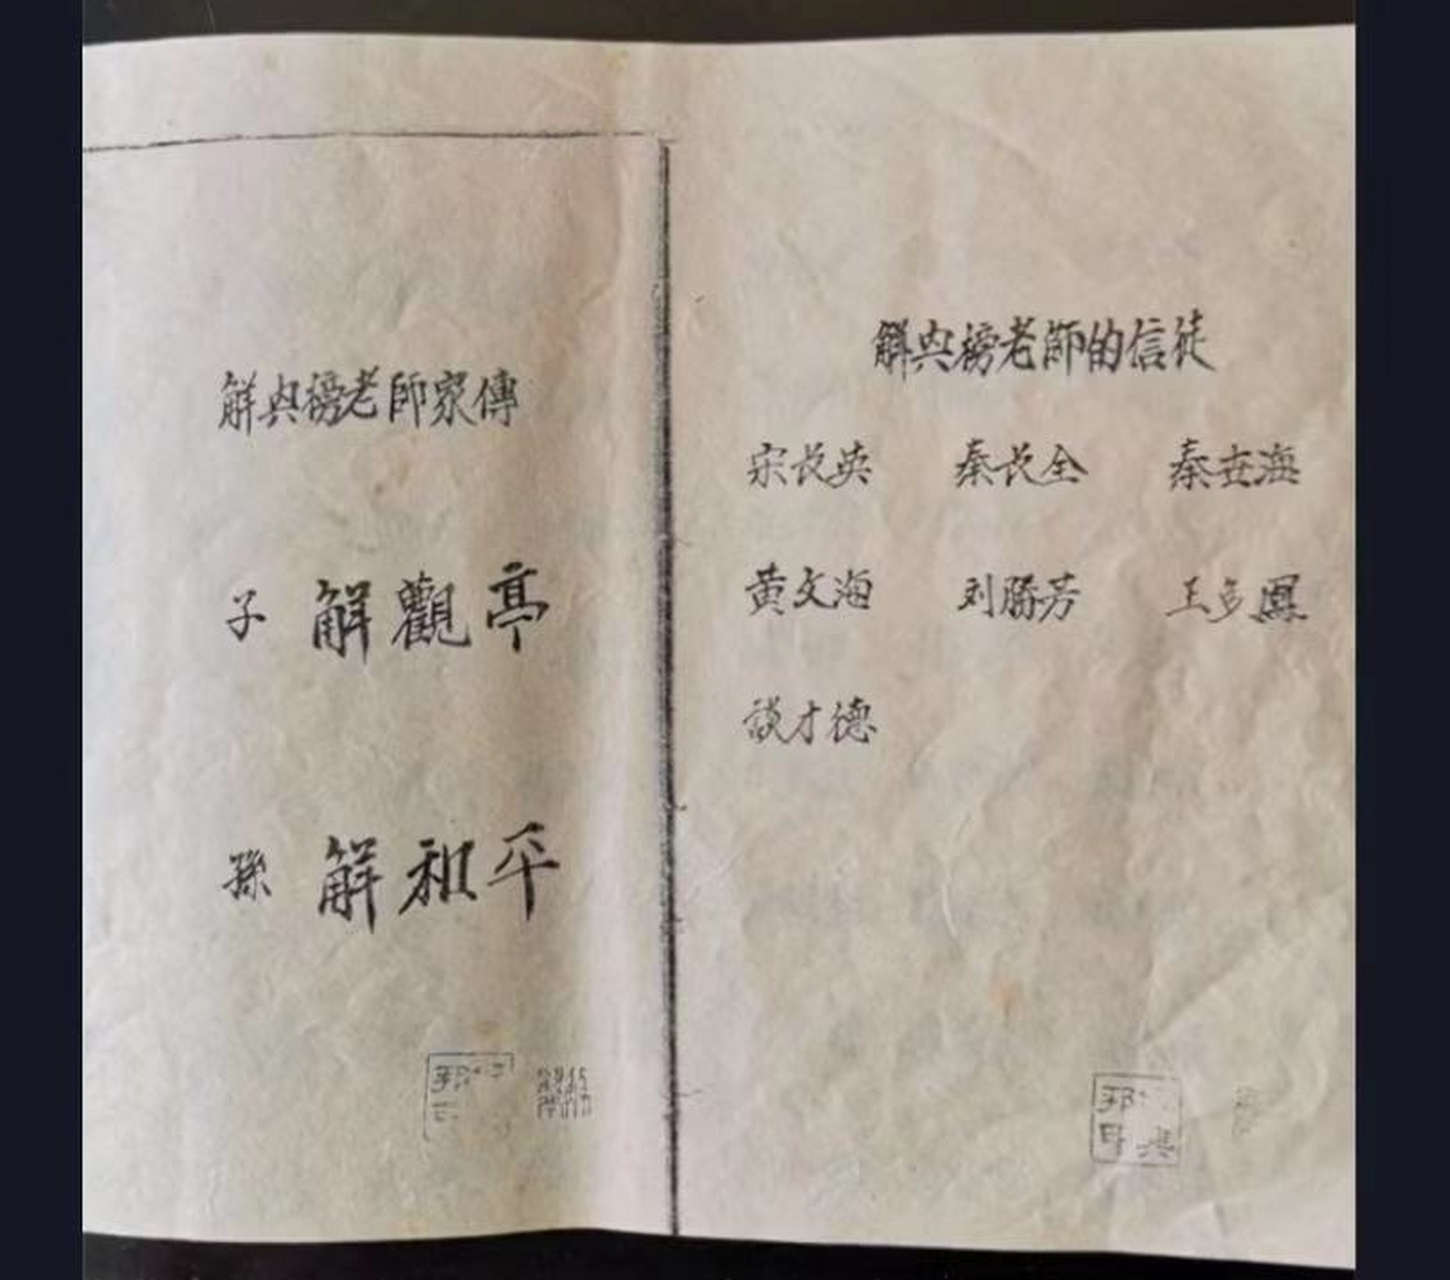 解興榜老師家傳
子 解觀亭
孫 解祖平
解興榜老師的信徒
宋长英 秦长全 秦在海
黄文海 刘勝芳 王多鳳
談才德